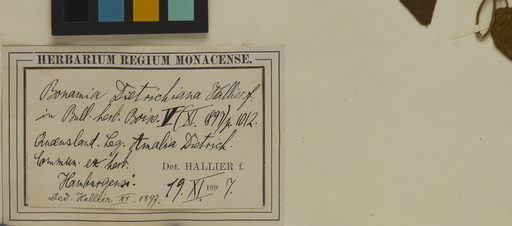 HERBARIUM REGIUM MONACENSE.
Bonamia Dietrichiana Hallier f.
in Bull. herb. Boiss. V (XI. 1897) p. 1012.
Queensland. Lg. Amalia Dietrich.
Commun. ex herb.
Hamburgensi.
Det. HALLIER f.
19. XI. 1897.
Ded. Hallier XI. 1897.